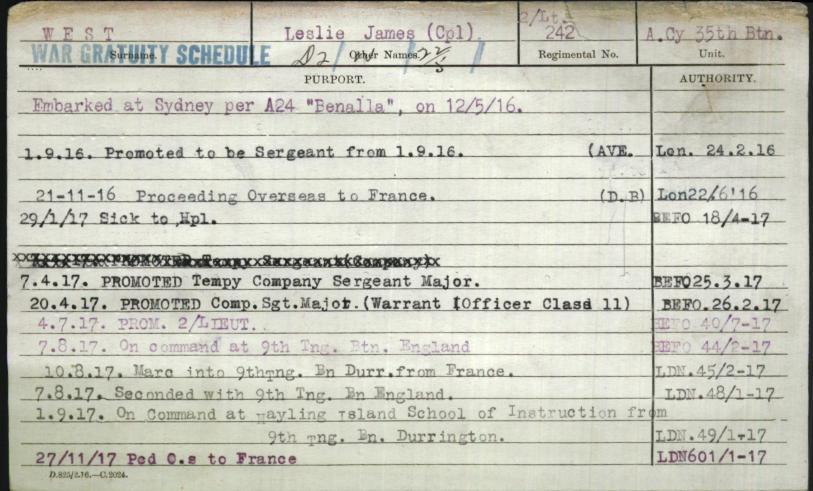 2/Lt.
WEST Leslie James (Cpl) 242 A.Cy 35th Btn.
WAR GRATUITY SCHEDULE Surname. Other Names. Regimental No. Unit.
PURPORT. AUTHORITY.
Embarked at Sydney per A24 "Benalla", on 12/5/16.
1.9.16. Promoted to be Sergeant from 1.9.16. (AVE. Lon. 24.2.16
21-11-16 Proceeding Overseas to France. (D.R) Lon22/6'16
29/1/17 Sick to Hpl. BEFO 18/4-17
PROMOTED Tempy Sergeant (Company)
7.4.17. PROMOTED Tempy Company Sergeant Major. BEFO25.3.17
20.4.17. PROMOTED Comp.Sgt.Major.(Warrant (Officer Class 11) BEFO.26.2.17
4.7.17. PROM. 2/LIEUT. BEFO 40/7-17
7.8.17. On command at 9th Tng. Btn. England BEFO 44/2-17
10.8.17. Marc into 9thTng. Bn Durr.from France. LDN.45/2-17
7.8.17. Seconded with 9th Tng. Bn England. LDN.48/1-17
1.9.17. On Command at Hayling Island School of Instruction from
9th Tng. Bn. Durrington. LDN.49/1-17
27/11/17 Pcd O.s to France LDN601/1-17
D.825/2.16.—C.2024.